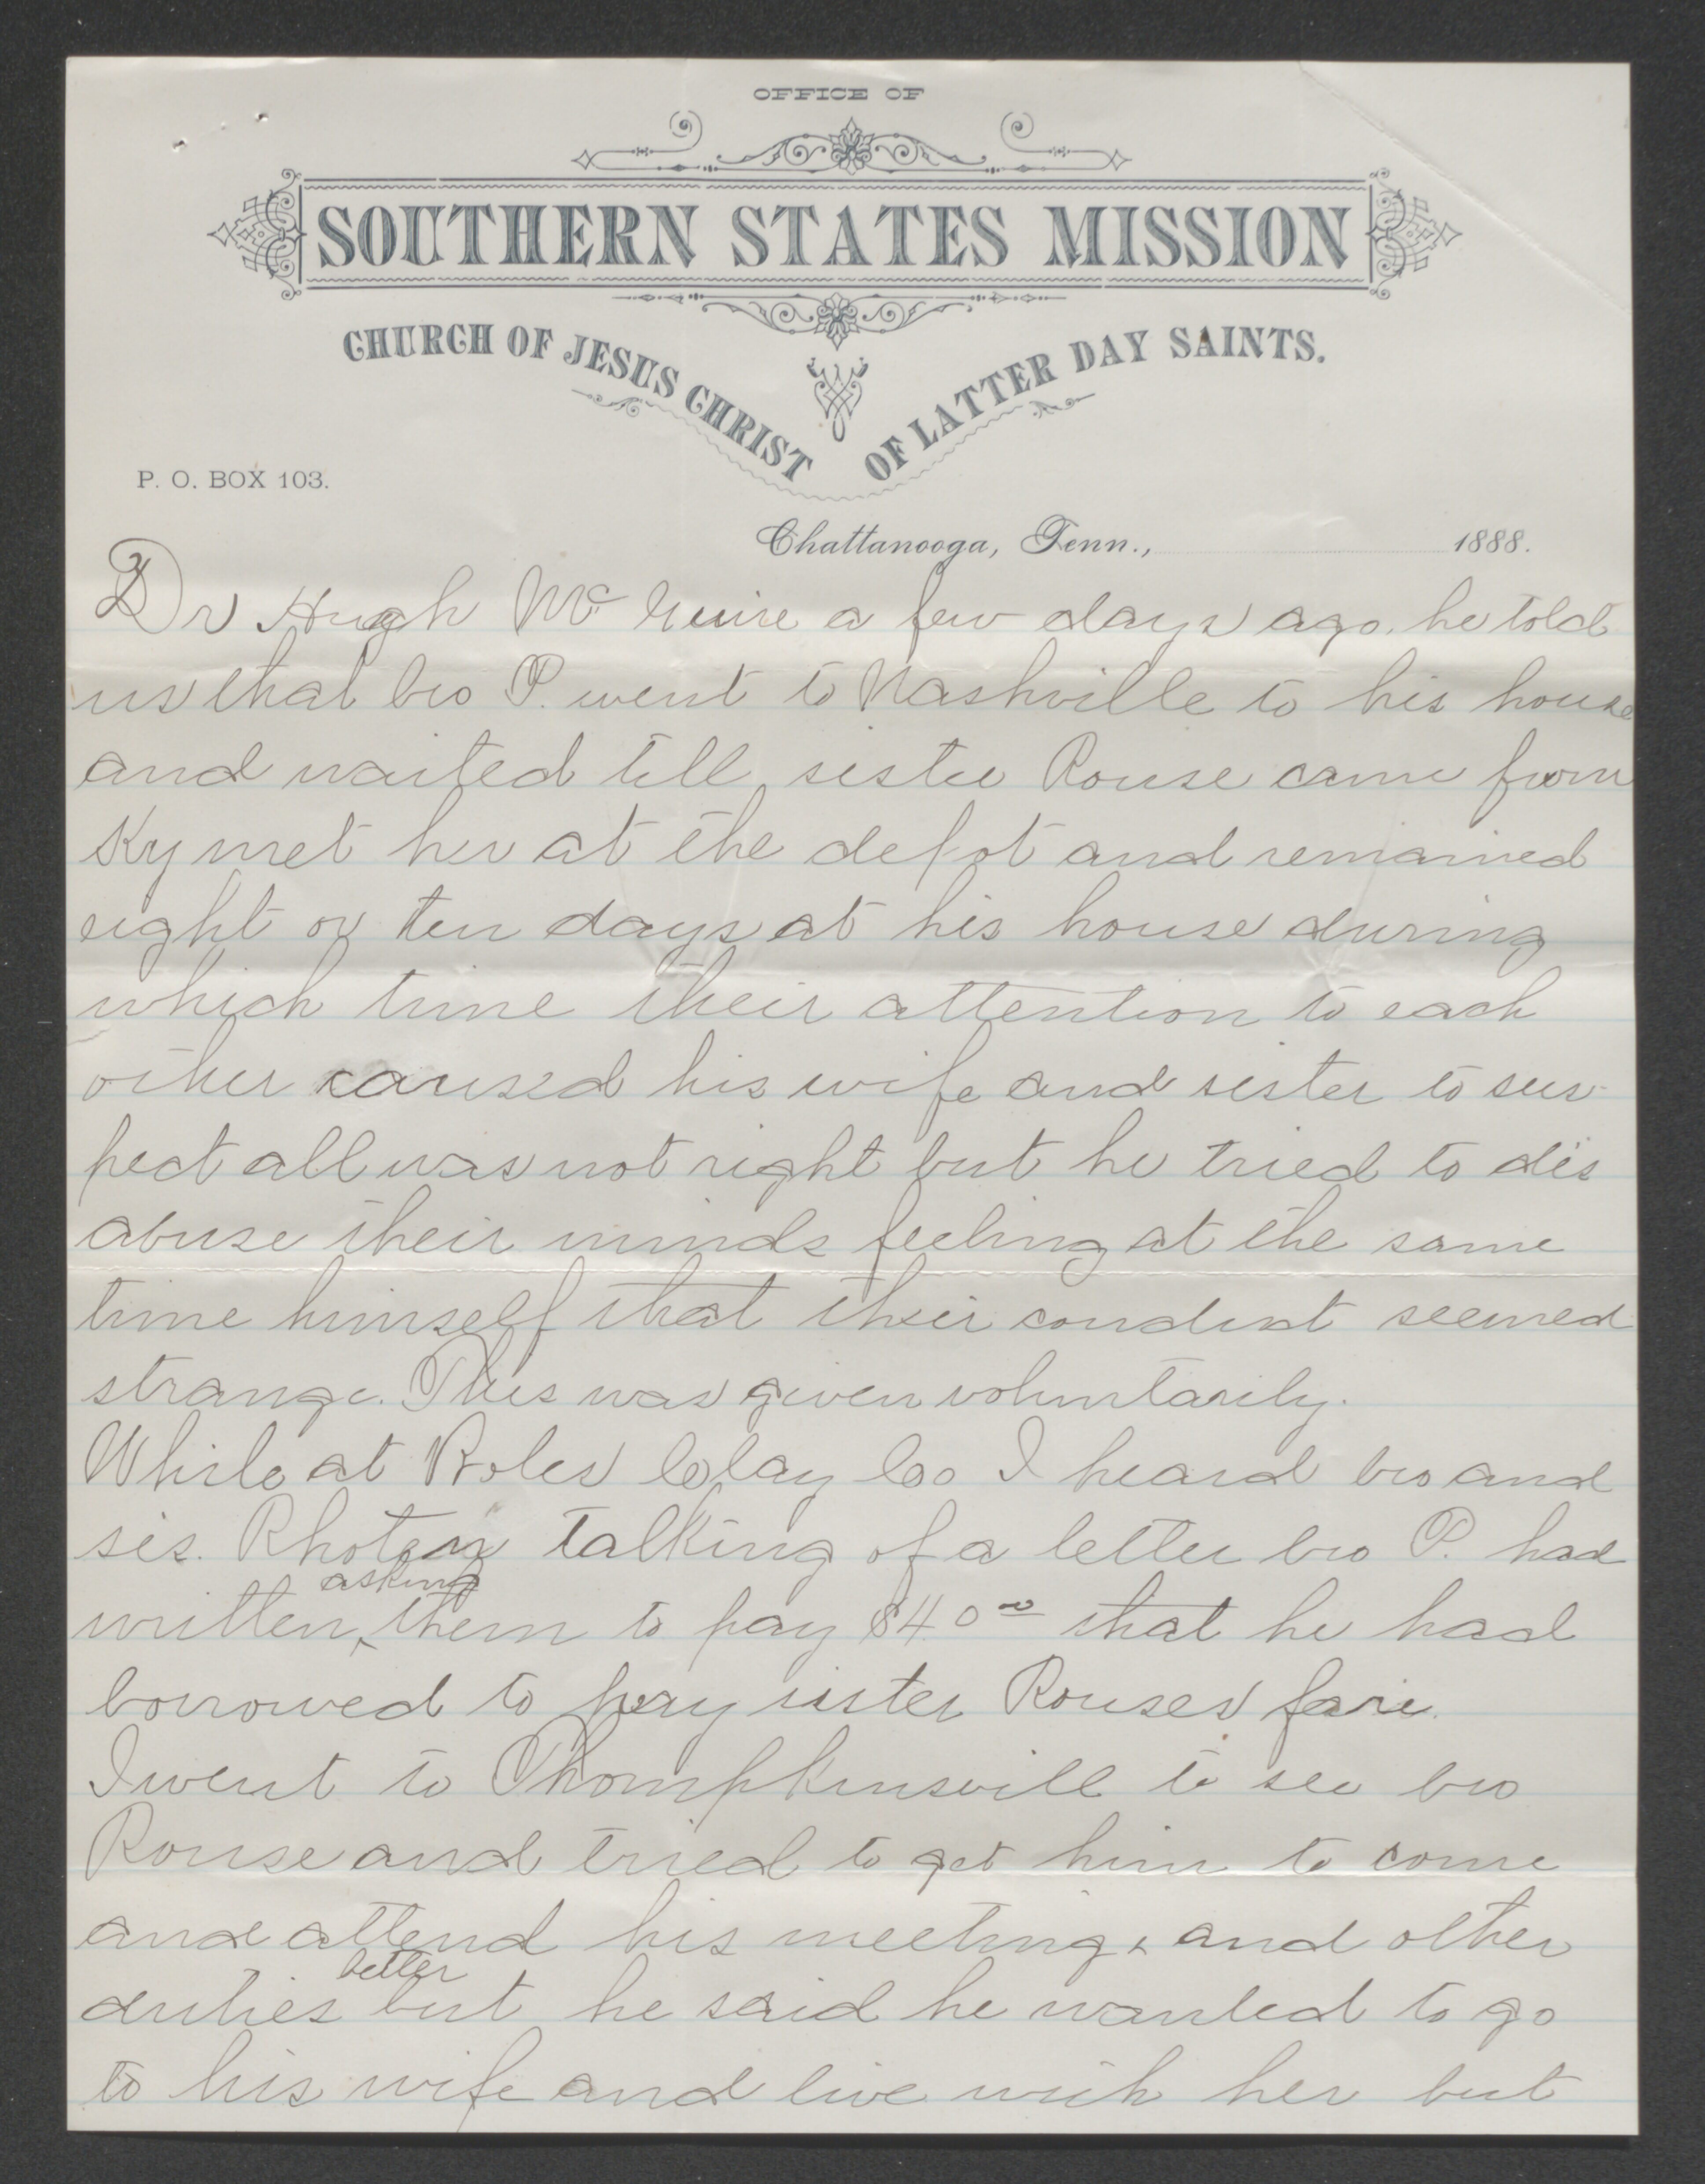 OFFICE OF
SOUTHERN STATES MISSION
CHURCH OF JESUS CHRIST OF LATTER DAY SAINTS.
P. O. BOX 103.
Chattanooga, Tenn., 1888.
Dr Hugh Mc Guire a few days ago. he told
us that bro P. went to Nashville to his house
and waited till sister Rouse came from
Ky met her at the depot and remained
eight or ten days at his house during
which time their attention to each
other caused his wife and sister to sus-
pect all was not right but he tried to dis
abuse their minds feeling at the same
time himself that their conduct seemed
strange. This was given voluntarily.
While at Boles Clay Co I heard bro and
sis. Rhoton talking of a letter bro P. had
asking
written, them to pay $40.00 that he had
borrowed to pay sister Rouses fare.
I went to Thompkinsvill to see bro
Rouse and tried to get him to come
and attend his meetings and other
better
duties but he said he wanted to go
to his wife and live with her but